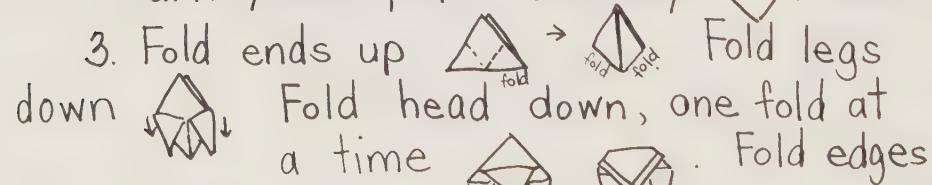 3. Fold ends up fold → fold fold Fold legs
down Fold head down, one fold at
a time . Fold edges